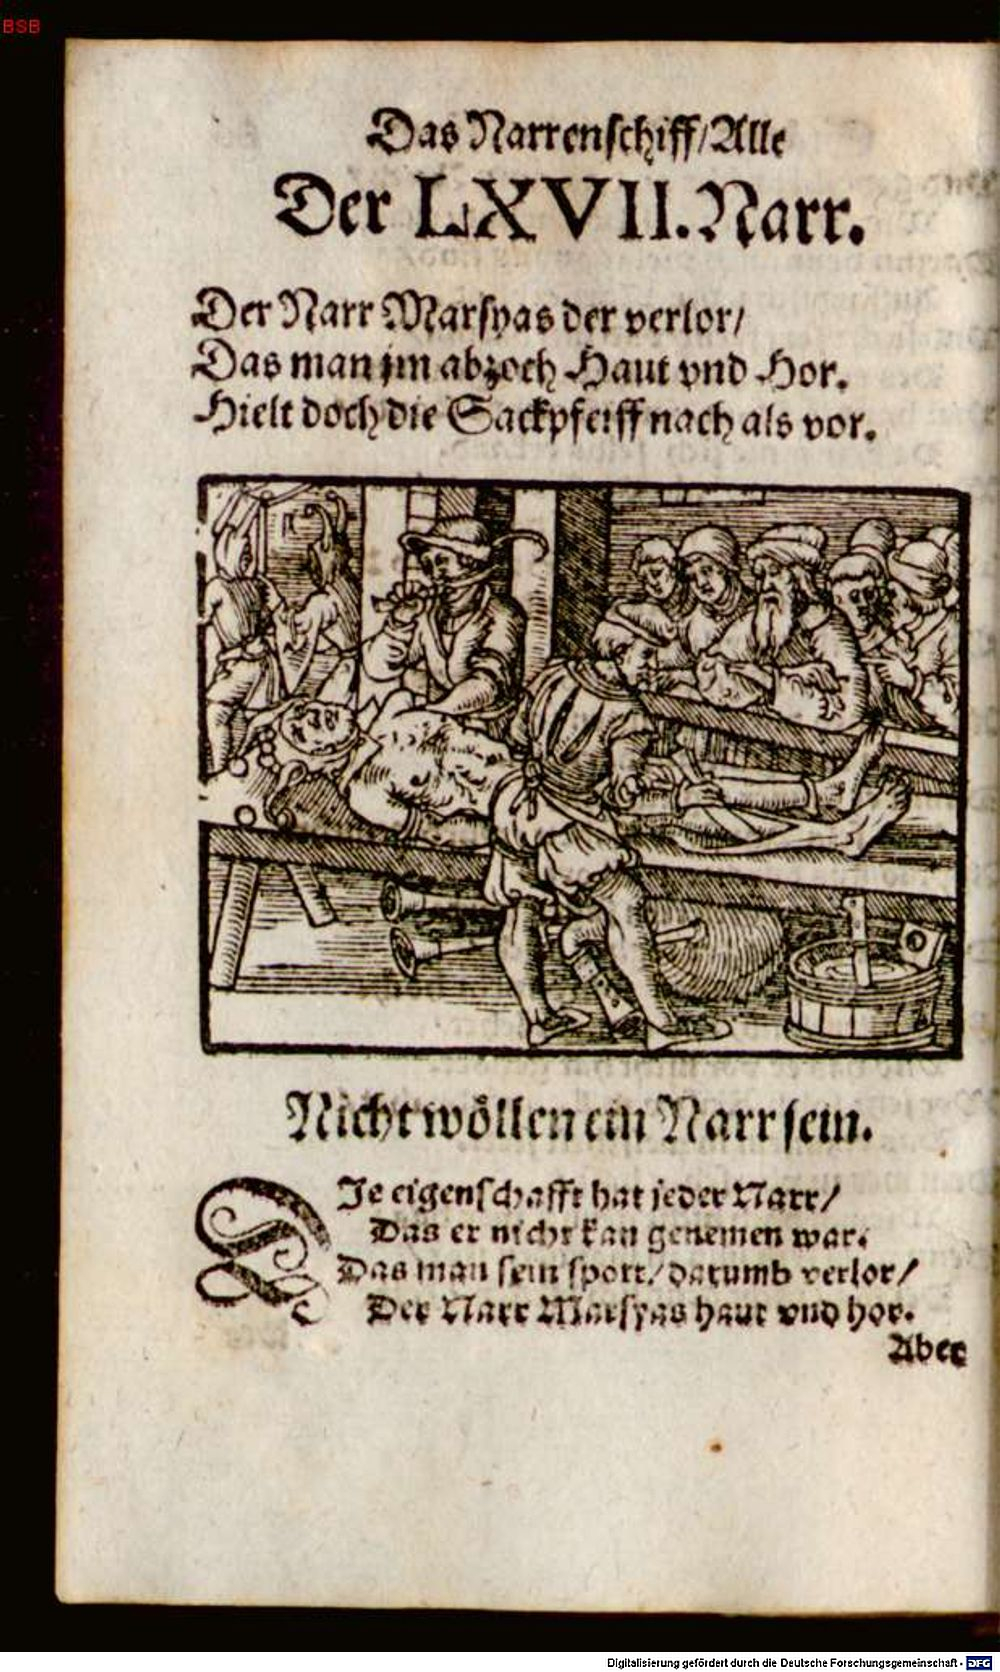 BSB
Das Narrenschiff/Alle
Der LXVII. Narr.
Der Narr Marsyas der verlor/
Das man jm abzoch Haut vnd Hor.
Hielt doch die Sackpfeiff nach als vor.
Nicht wöllen ein Narr sein.
DJe eigenschafft hat jeder Narr/
Das er nicht kan genemen war.
Das man sein spott/darumb verlor/
Der Narr Marsyas haut vnd hor.
Aber
Digitalisierung gefördert durch die Deutsche Forschungsgemeinschaft - DFG